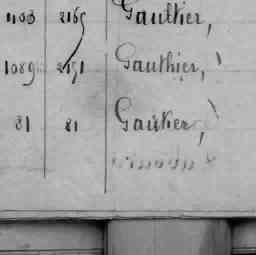 1103 2165 Gauthier,
1089 2171 Gauthier,
81 81 Gautier,